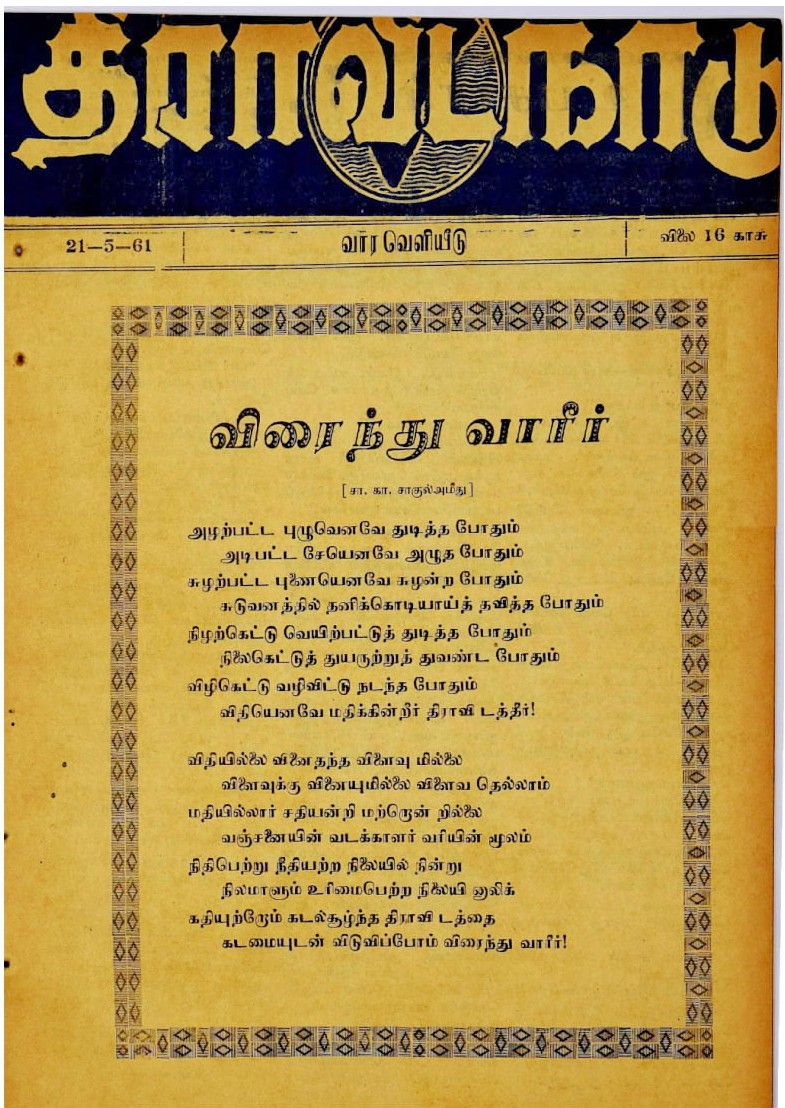 திராவிடநாடு
21—5—61
வார வெளியீடு
விலை 16 காசு
விரைந்து வாரீர்
[சா. கா. சாகுல்அமீது]
அழற்பட்ட புழுவெனவே துடித்த போதும்
அடிபட்ட சேயெனவே அழுத போதும்
சுழற்பட்ட புணையெனவே சுழன்ற போதும்
சுடுவனத்தில் தனிக்கொடியாய்த் தவித்த போதும்
நிழற்கெட்டு வெயிற்பட்டுத் துடித்த போதும்
நிலைகெட்டுத் துயருற்றுத் துவண்ட போதும்
விழிகெட்டு வழிவிட்டு நடந்த போதும்
விதியெனவே மதிக்கின்றீர் திராவி டத்தீர்!
விதியில்லை வினைதந்த விளைவு மில்லை
விளைவுக்கு வினையுமில்லை விளைவ தெல்லாம்
மதியில்லார் சதியன்றி மற்றொன் றில்லை
வஞ்சனையின் வடக்காளர் வரியின் மூலம்
நிதிபெற்று நீதியற்ற நிலையில் நின்று
நிலமாளும் உரிமைபெற்ற நிலையி னாலிக்
கதியுற்றோம் கடல்சூழ்ந்த திராவி டத்தை
கடமையுடன் விடுவிப்போம் விரைந்து வாரீர்!